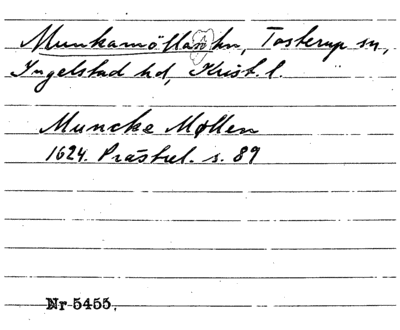 Munkamöllan hn, Tosterup sn,
Ingelstad hd, Krist. l.
Muncke Møllen
1624. Prästrel. s. 89
Nr 5455.